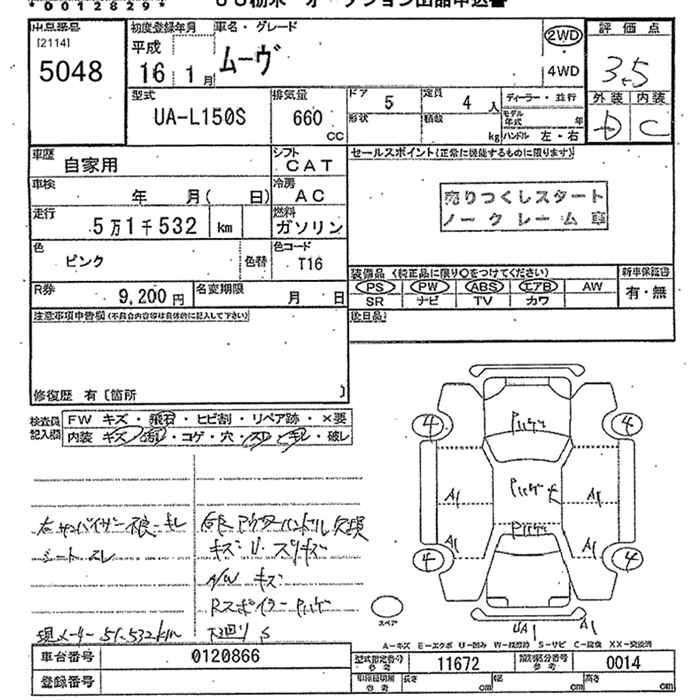 *00128291*
出品番号
[2114]
5048
初度登録年月
平成
16 1月
車名・グレード
ムーヴ
2WD
4WD
評価点
3.5
外装 内装
D C
型式
UA-L150S
排気量
660
CC
ドア 5
定員 4 人
形状
積載 kg
ディーラー・並行
モデル年式 年
ハンドル 左・右
車歴
自家用
シフト
CAT
車検
年 月( 日)
冷房
AC
走行
5万1千532 km
燃料
ガソリン
色
ピンク
色替
色コード
T16
R券
9,200円
名変期限
月 日
セールスポイント(正常に機能するものに限ります)
売りつくしスタート
ノークレーム車
装備品 (純正品に限り○をつけてください)
PS PW ABS エアB AW
SR ナビ TV カワ
新車保証書
有・無
後日品
注意事項申告欄(不具合内容等は具体的に記入して下さい)
修復歴 有〔箇所 〕
検査員
記入欄
FW キズ・飛石・ヒビ割・リペア跡・×要
内装 キズ・汚れ・コゲ・穴・スレ・キレ・破レ
シートスレ
キズ・U・スリキズ
A/W キズ
Rスポイラーハゲ
下廻り S
現メーター51,532km
4 4
A1 A1
A1 A1
4 4
UA1 A1
スペア
A-キズ E-エクボ U-凹み W-板修跡 S-サビ C-腐食 XX-交換済
車台番号
0120866
登録番号
型式指定番号
参考
11672
類別区分番号
参考
0014
車検証明細
参考
長さ cm
幅 cm
高さ cm